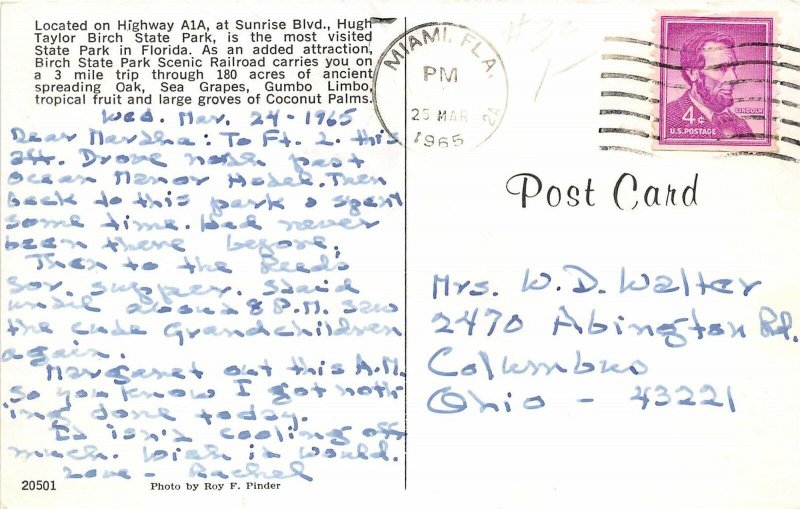 Located on Highway A1A, at Sunrise Blvd., Hugh
Taylor Birch State Park, is the most visited
State Park in Florida. As an added attraction,
Birch State Park Scenic Railroad carries you on
a 3 mile trip through 180 acres of ancient
spreading Oak, Sea Grapes, Gumbo Limbo,
tropical fruit and large groves of Coconut Palms.
Wed. Mar. 24-1965
Dear Martha: To Ft. L. this
aft. Drove north past
Ocean Manor Hotel. Then
back to this park & spent
some time. Had never
been there before.
Then to the Reeds
for supper. Staid
until about 8 P.M. Saw
the cute Grandchildren
again.
Margaret out this A.M.
so you know I got noth
ing done today.
It isn't cooling off
much. Wish it would.
Love - Rachel
20501
Photo by Roy F. Pinder
MIAMI, FLA.
PM
25 MAR
1965
2A
4¢
LINCOLN
U.S. POSTAGE
Post Card
Mrs. W. D. Walter
2470 Abington Rd.
Columbus
Ohio - 43221